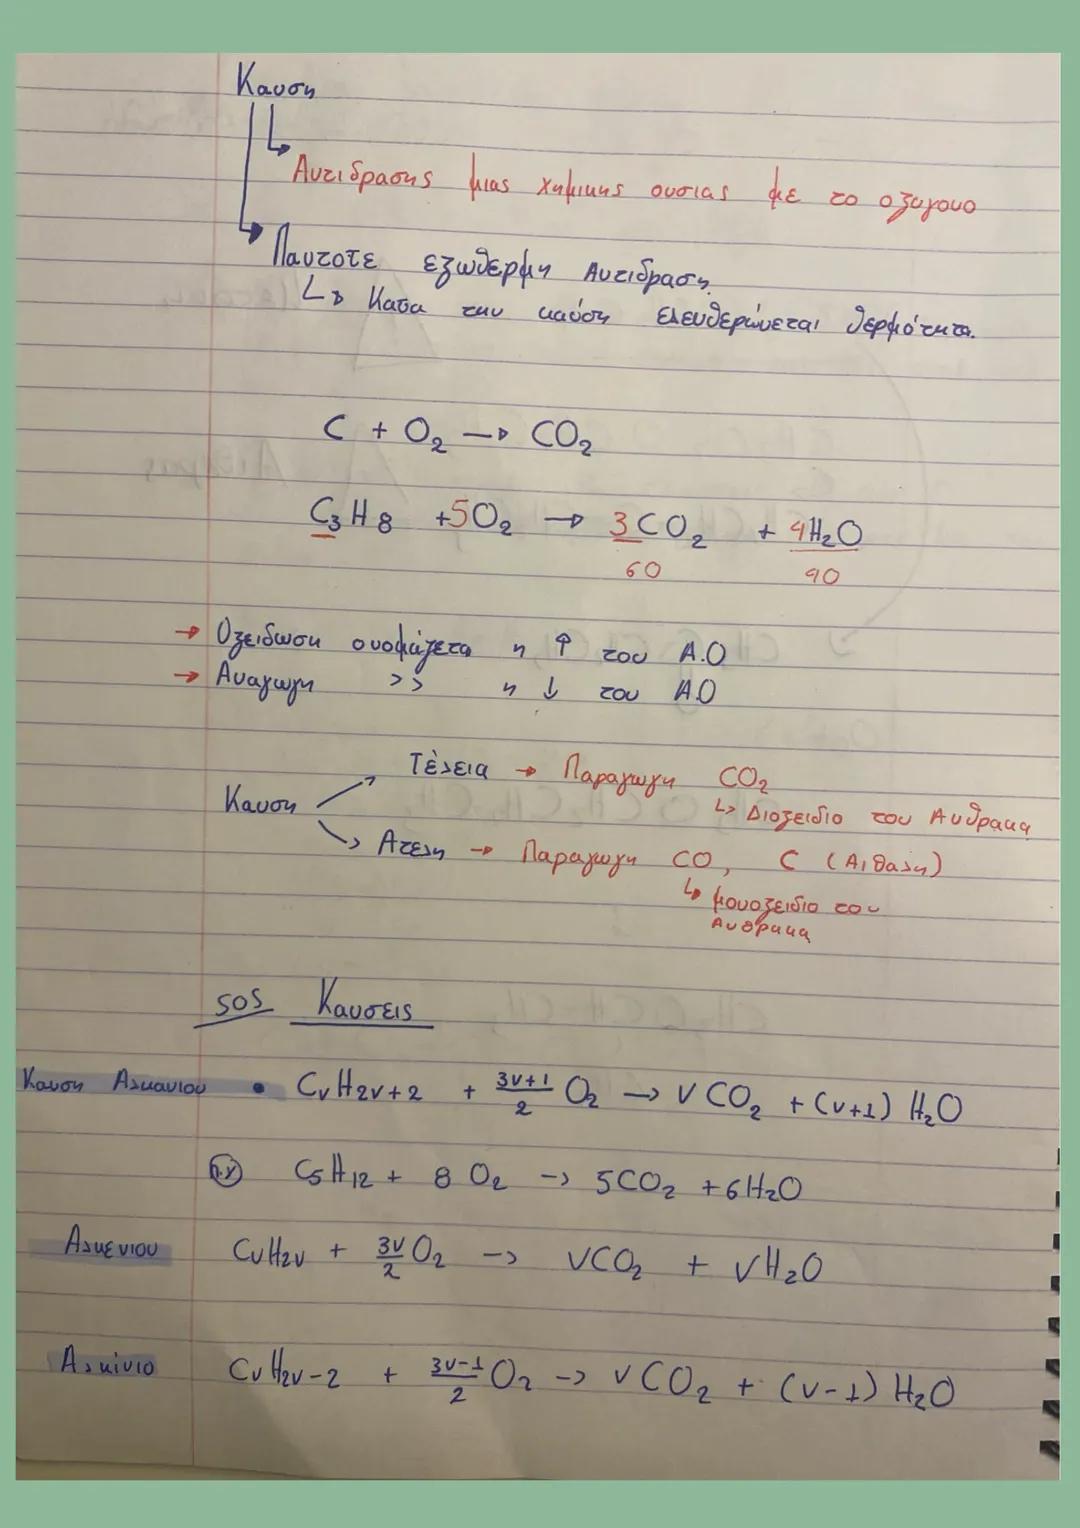 Καυση
Αντιδρασης μιας χημικης ουσιας με το οξυγονο
Παντοτε εξωθερμη Αντιδραση.
Κατα την καύση ελευθερώνεται θερμότητα.
C + O₂ → CO₂
C₃H₈ +5O₂ → 3CO₂ + 4H₂O
60 90
→ Οξειδωση ονομάζετα η ↑ του Α.Ο
→ Αναγωγη >> η ↓ του Α.Ο
Τέλεια → Παραγωγη CO₂
↳ Διοξειδιο του Ανθρακα
Καυση
Ατελη → Παραγωγη CO, C (Αιθαλη)
↳ μονοξειδιο του
Ανθρακα
SOS Καυσεις
Καυση Αλκανιου • CνH2ν+2 + 3ν+1/2 O₂ → νCO₂ + (ν+1) H₂O
π.χ C5H12 + 8 O₂ → 5CO₂ +6H₂O
Αλκενιου CνH2ν + 3ν/2 O₂ → νCO₂ + νH₂O
Αλκίνιο CνH2ν-2 + 3ν-1/2 O₂ → νCO₂ + (ν-1) H₂O